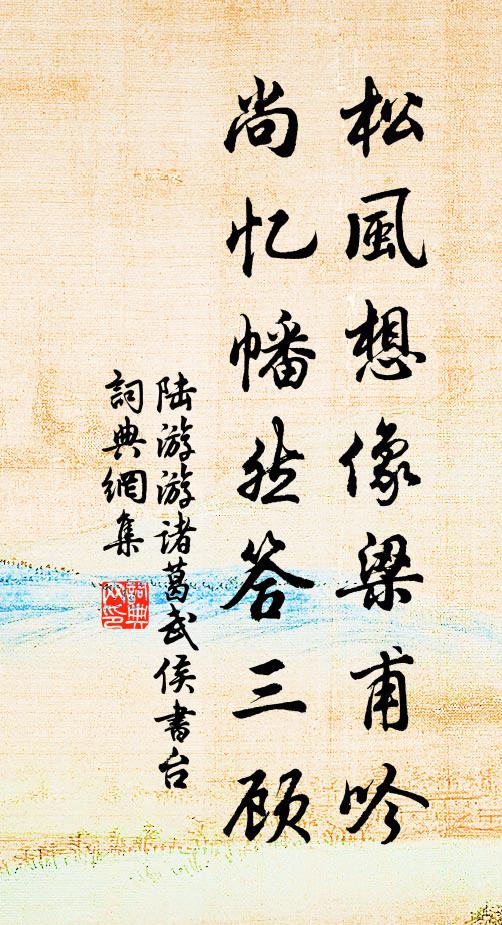 松風想像梁甫吟
尚忆幡然答三顾
陆游游诸葛武侯書台
詞典網集